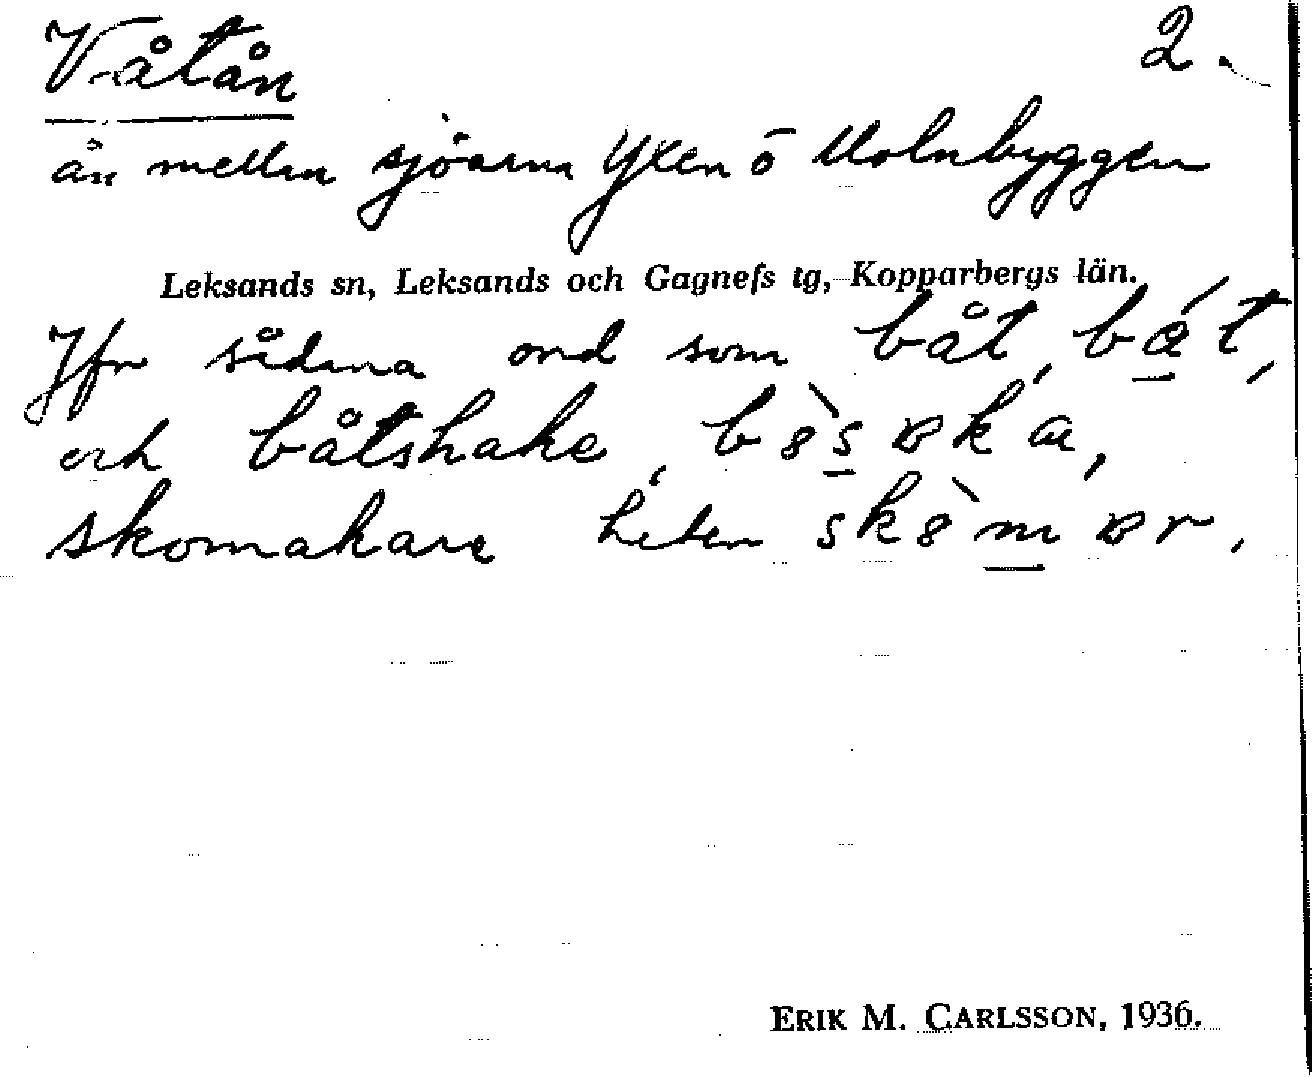 Våtån 2.
ån mellan sjöarna Yxen o Molnbyggen
Leksands sn, Leksands och Gagnefs tg, Kopparbergs län.
Jfr sådana ord som båt, 
och båtshake,
skomakare heter
ERIK M. CARLSSON, 1936.